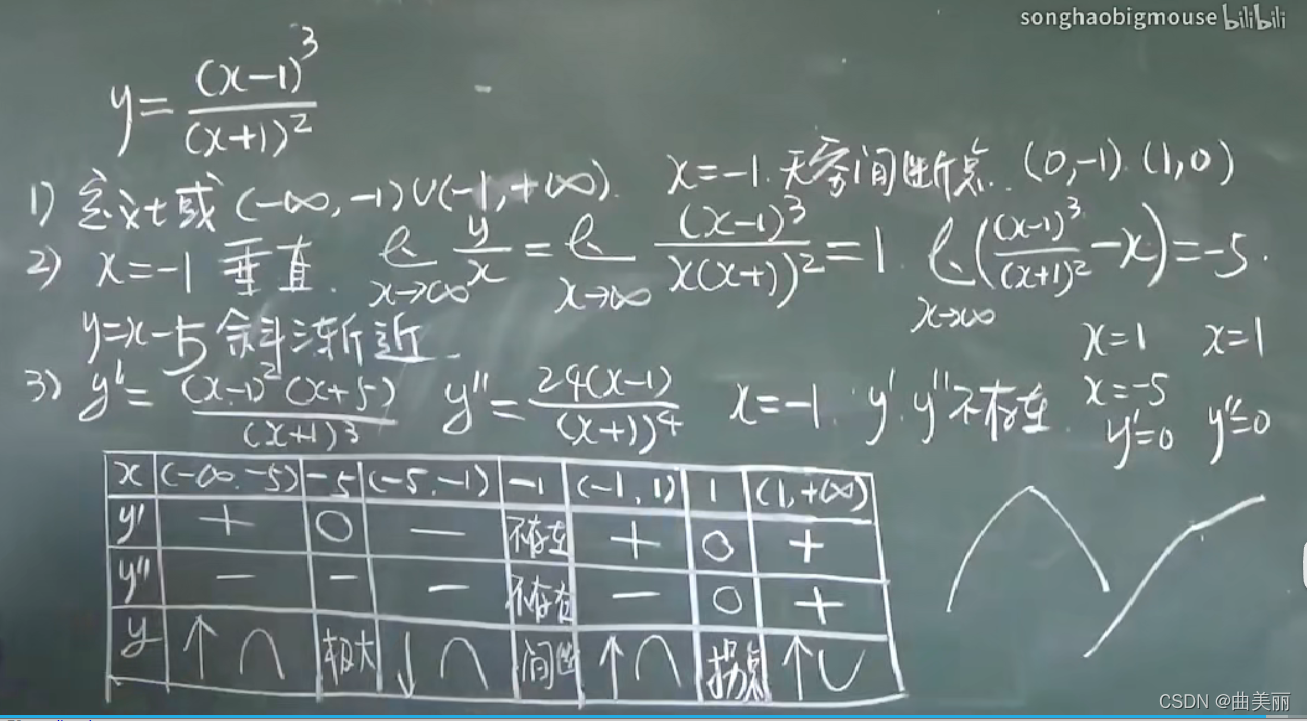 songhaobigmouse bilibili
y=(x-1)³/(x+1)²
1) 定义域 (-∞,-1)∪(-1,+∞). x=-1.无穷间断点. (0,-1).(1,0)
2) x=-1 垂直. lim x→∞ y/x = lim x→∞ (x-1)³/x(x+1)² = 1. lim x→∞ ((x-1)³/(x+1)² - x) = -5.
y=x-5 斜渐近.
3) y'= (x-1)²(x+5)/(x+1)³ y''= 24(x-1)/(x+1)⁴ x=-1. y'.y''不存在. x=1 x=-5 y'=0 x=1 y''=0
x (-∞.-5) -5 (-5.-1) -1 (-1,1) 1 (1,+∞)
y' + 0 — 不存在 + 0 +
y'' — - — 不存在 — 0 +
y ↑ ∩ 极大 ↓ ∩ 间断 ↑ ∩ 拐点 ↑ ∪
CSDN @曲美丽